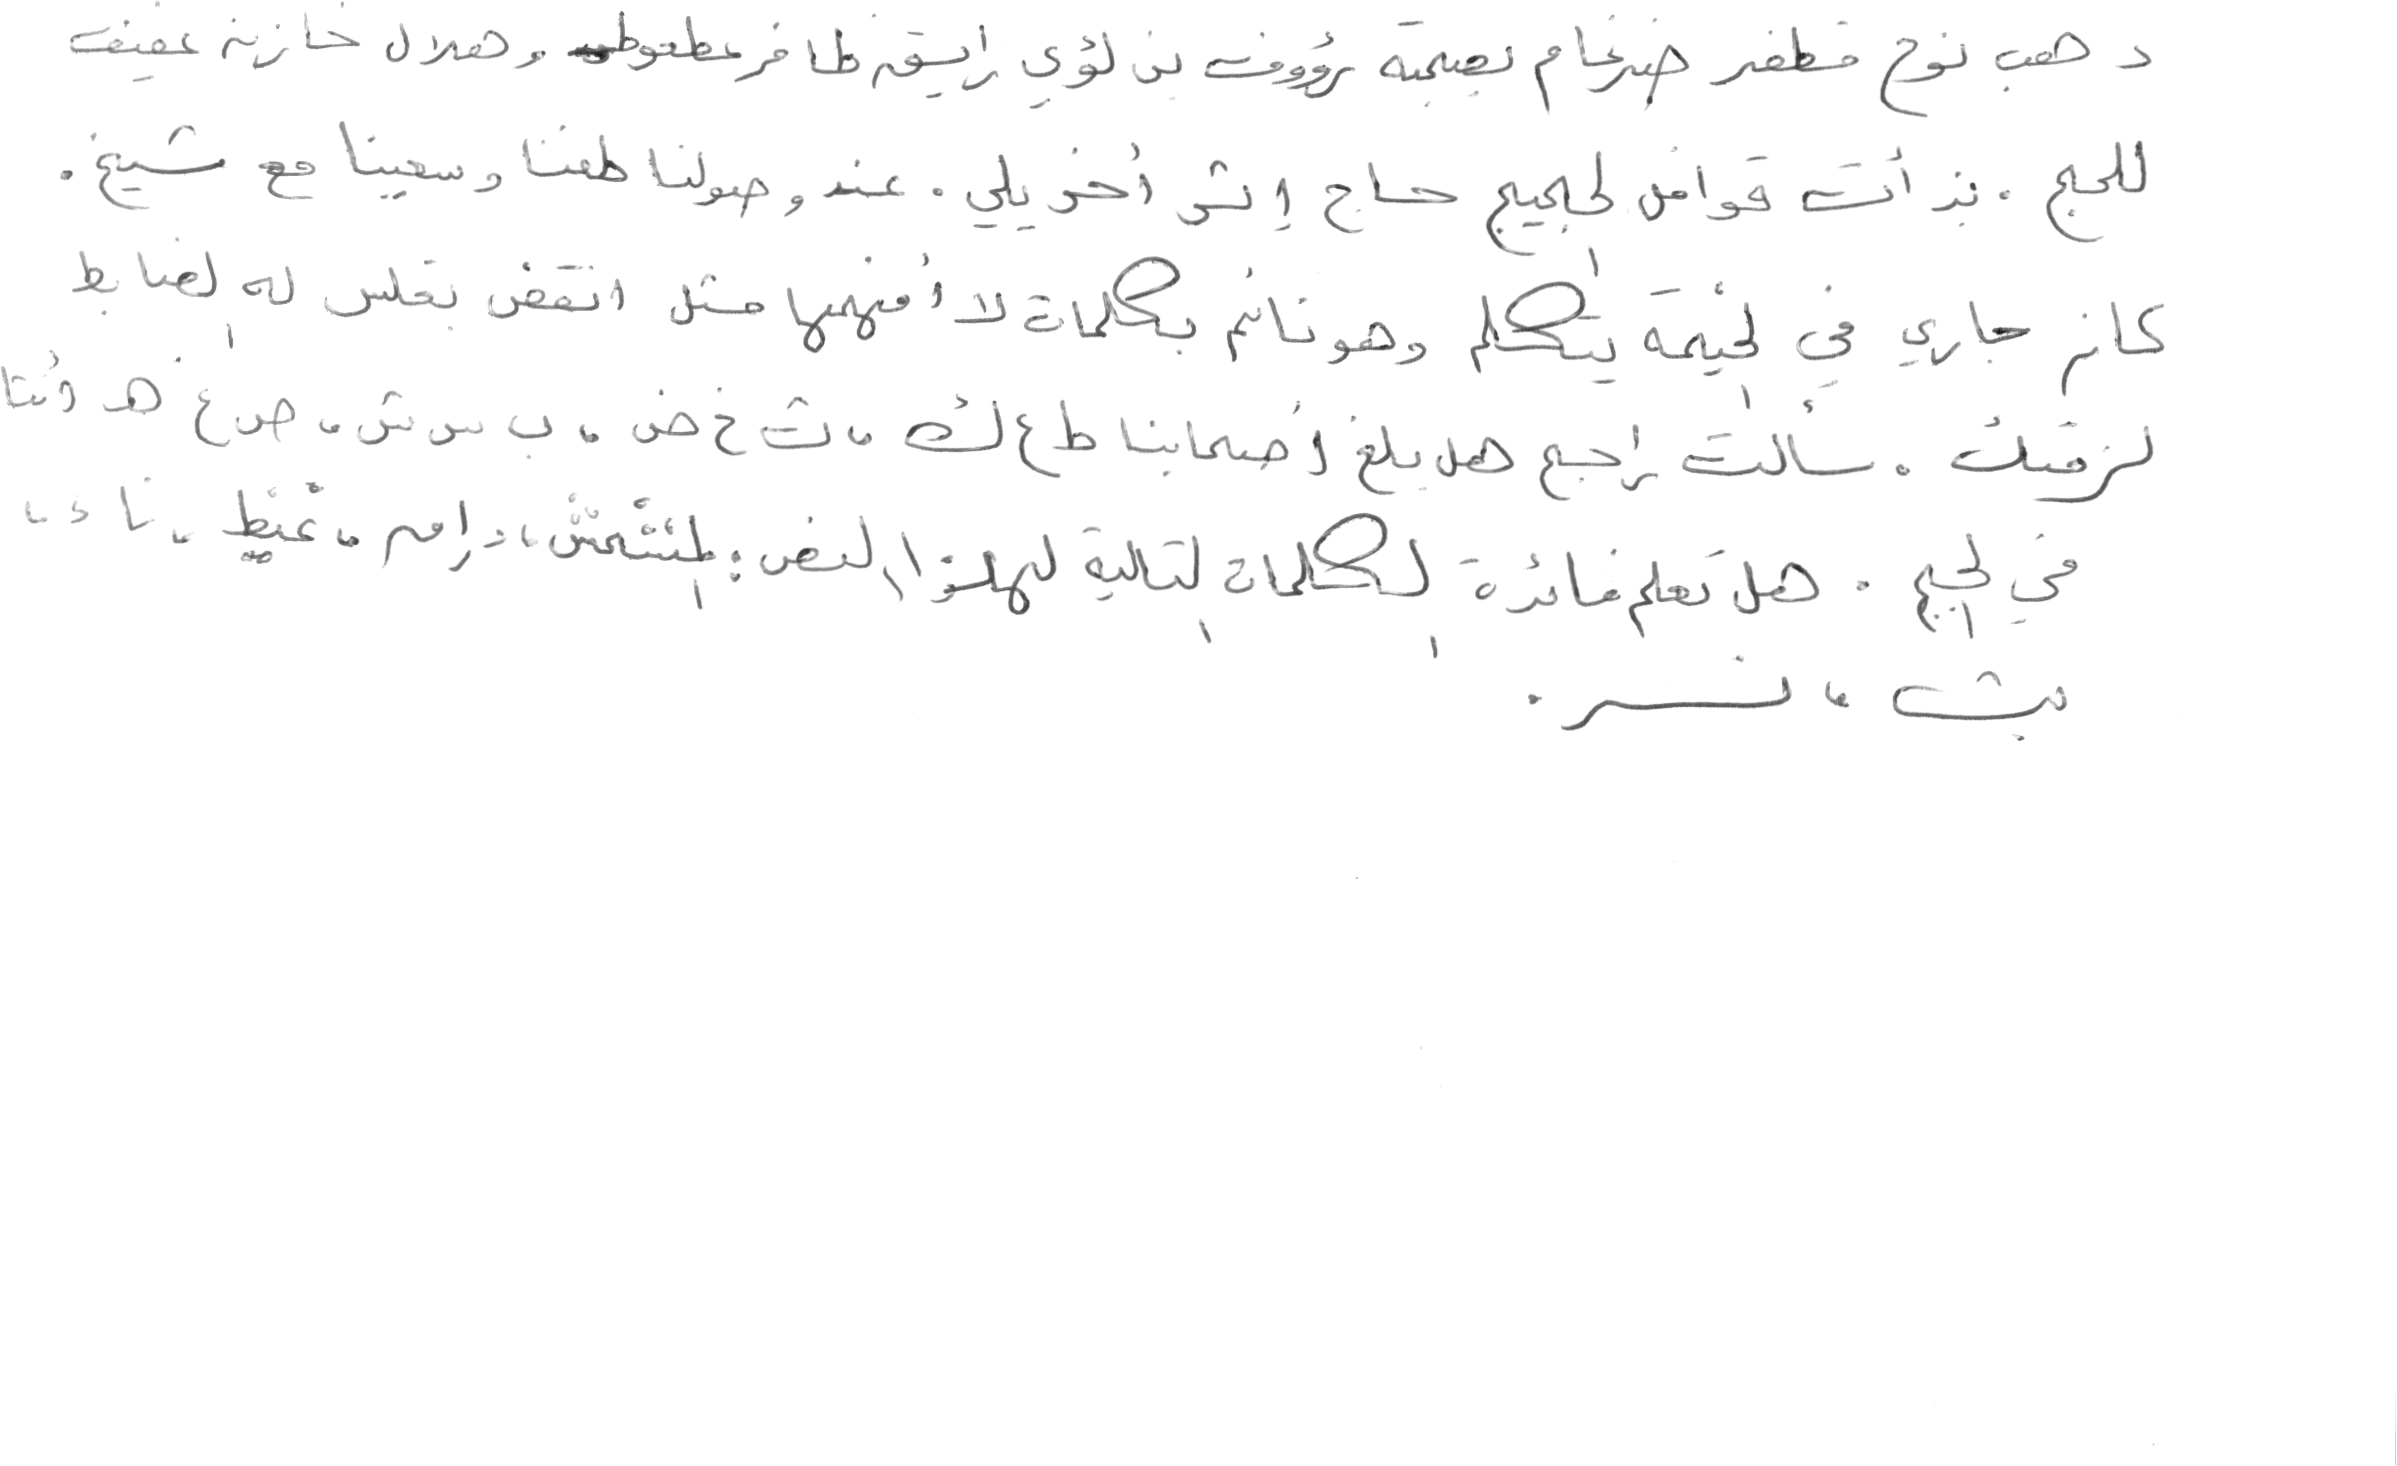 ذهب نوح مظفر ضرغام بصحبة رؤوف بن لؤي رايق ظافر عطعوط وهلال خازن عفيف
للحج . بدأت قوافل لحجيج حاج إثر أخر يلي . عند وصولنا طفنا وسعينا مع شيخ .
كان جاري في الخيمة يتكلم وهو نائم بكلمات لا أفهمها مثل انقض بغلس له الضابط
لزقك . سألت راجح هل بلغ أصحابنا ط ع ك ، ث خ ض ، ب س ش ، ص غ هـ أثنا
في الحجيج . هل تعلم فائدة الكلمات التالية لهذا النص : المشمش ، رام ، غيظ ، نا ء ،
بث ، نسر .